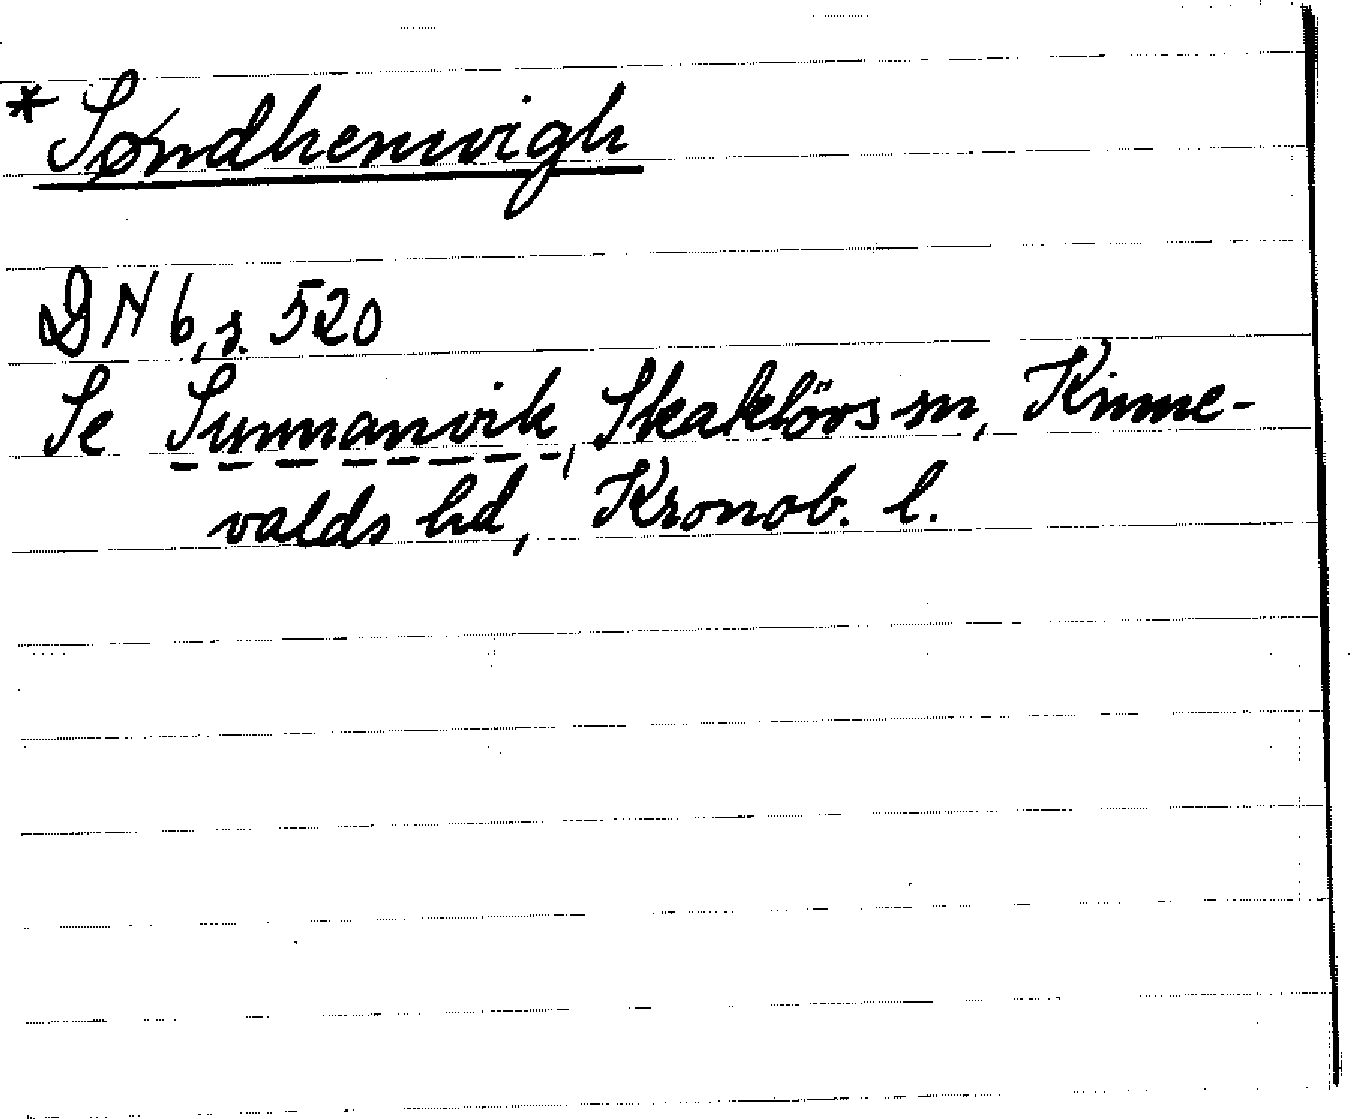 * Søndhenvigh
DN 6, s. 520
Se Sunnanvik, Skatelövs sn, Kinne-
valds hd, Kronob. l.